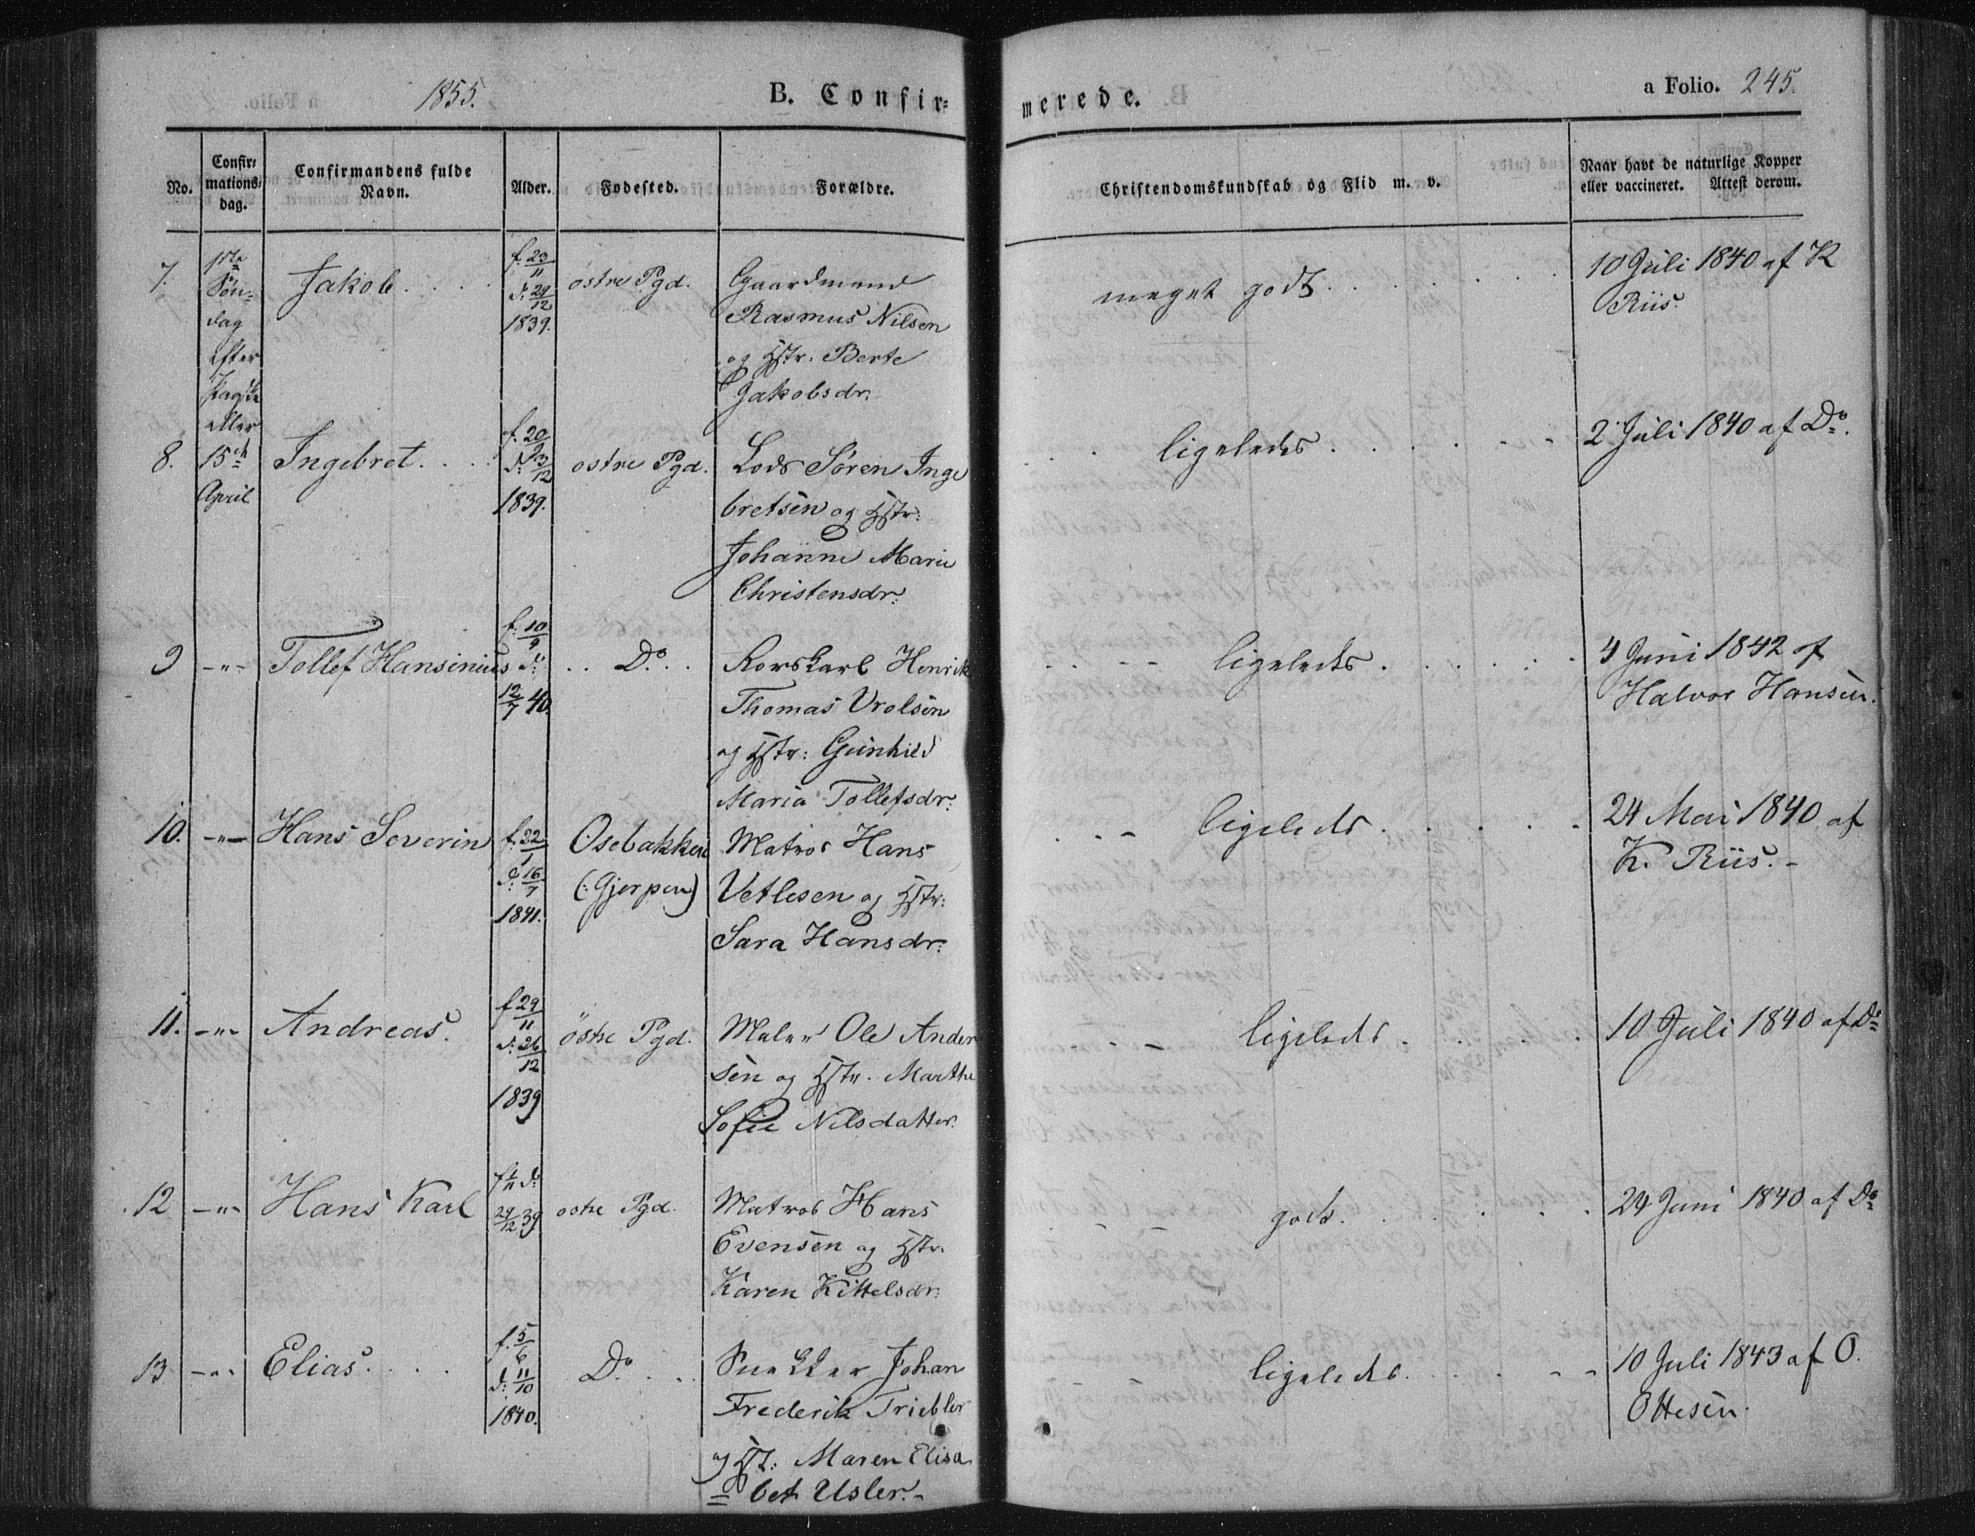 1855.
B. Confir=
merede.
a Folio. 245.
No.
Confir=
mations=
dag.
Confirmandens fulde
Navn.
Alder.
Fødested.
Forældre.
Christendomskundskab og Flid m. v.
Naar havt de naturlige Kopper
eller vaccineret. Attest derom.
7.
1ste
Søn=
dag
efter
Paaske
eller
15de
April
Jakob
f. 23/11
d. 29/12
1839.
østre Pgd.
Gaardmand
Rasmus Nilsen
og Hstr. Berte
Jakobsdr.
meget godt
10 Juli 1840 af K
Riis.
8.
Ingebret
f. 20/9
d. 23/12
1839.
østre Pgd.
Lods Søren Inge
bretsen og Hstr:
Johanne Marie
Christensdr.
ligeledes
2 Juli 1840 af Do.
9
-"-
Tollef Hansinius
f: 10/9 d:
12/7 40.
Do.
Rorskarl Henrik
Thomas Vrolsen
og Hstr: Gunhild
Maria Tollefsdr.
ligeledes
4 Juni 1842 af
Halvor Hansen.
10.
-"-
Hans Severin
f. 22/1
d: 16/7
1841.
Osebakken
(: Gjerpen)
Matros Hans
Vetlesen og Hstr:
Sara Hansdr.
ligeleds
24 Mai 1840 af
K. Riis.-
11.
-"-
Andreas.
f 29/11
d: 26/12
1839
østre Pgd.
Maler Ole Ander
sen og Hstr. Marthe
Sofie Nilsdatter.
ligeleds
10 Juli 1840 af Do
12
-"-
Hans Karl
29/12 39
østre Pgd.
Matros Hans
Evensen og Hstr.
Karen Kittelsdr.
godt.
24 Juni 1840 af Do
13
-"-
Elias.
f. 5/6
d: 11/10
1840.
Do.
Snekker Johan
Frederik Triebler
og Hst: Maren Elisa
= bet Usler.-
ligeledes.
10 Juli 1843 af O.
Ottesen.